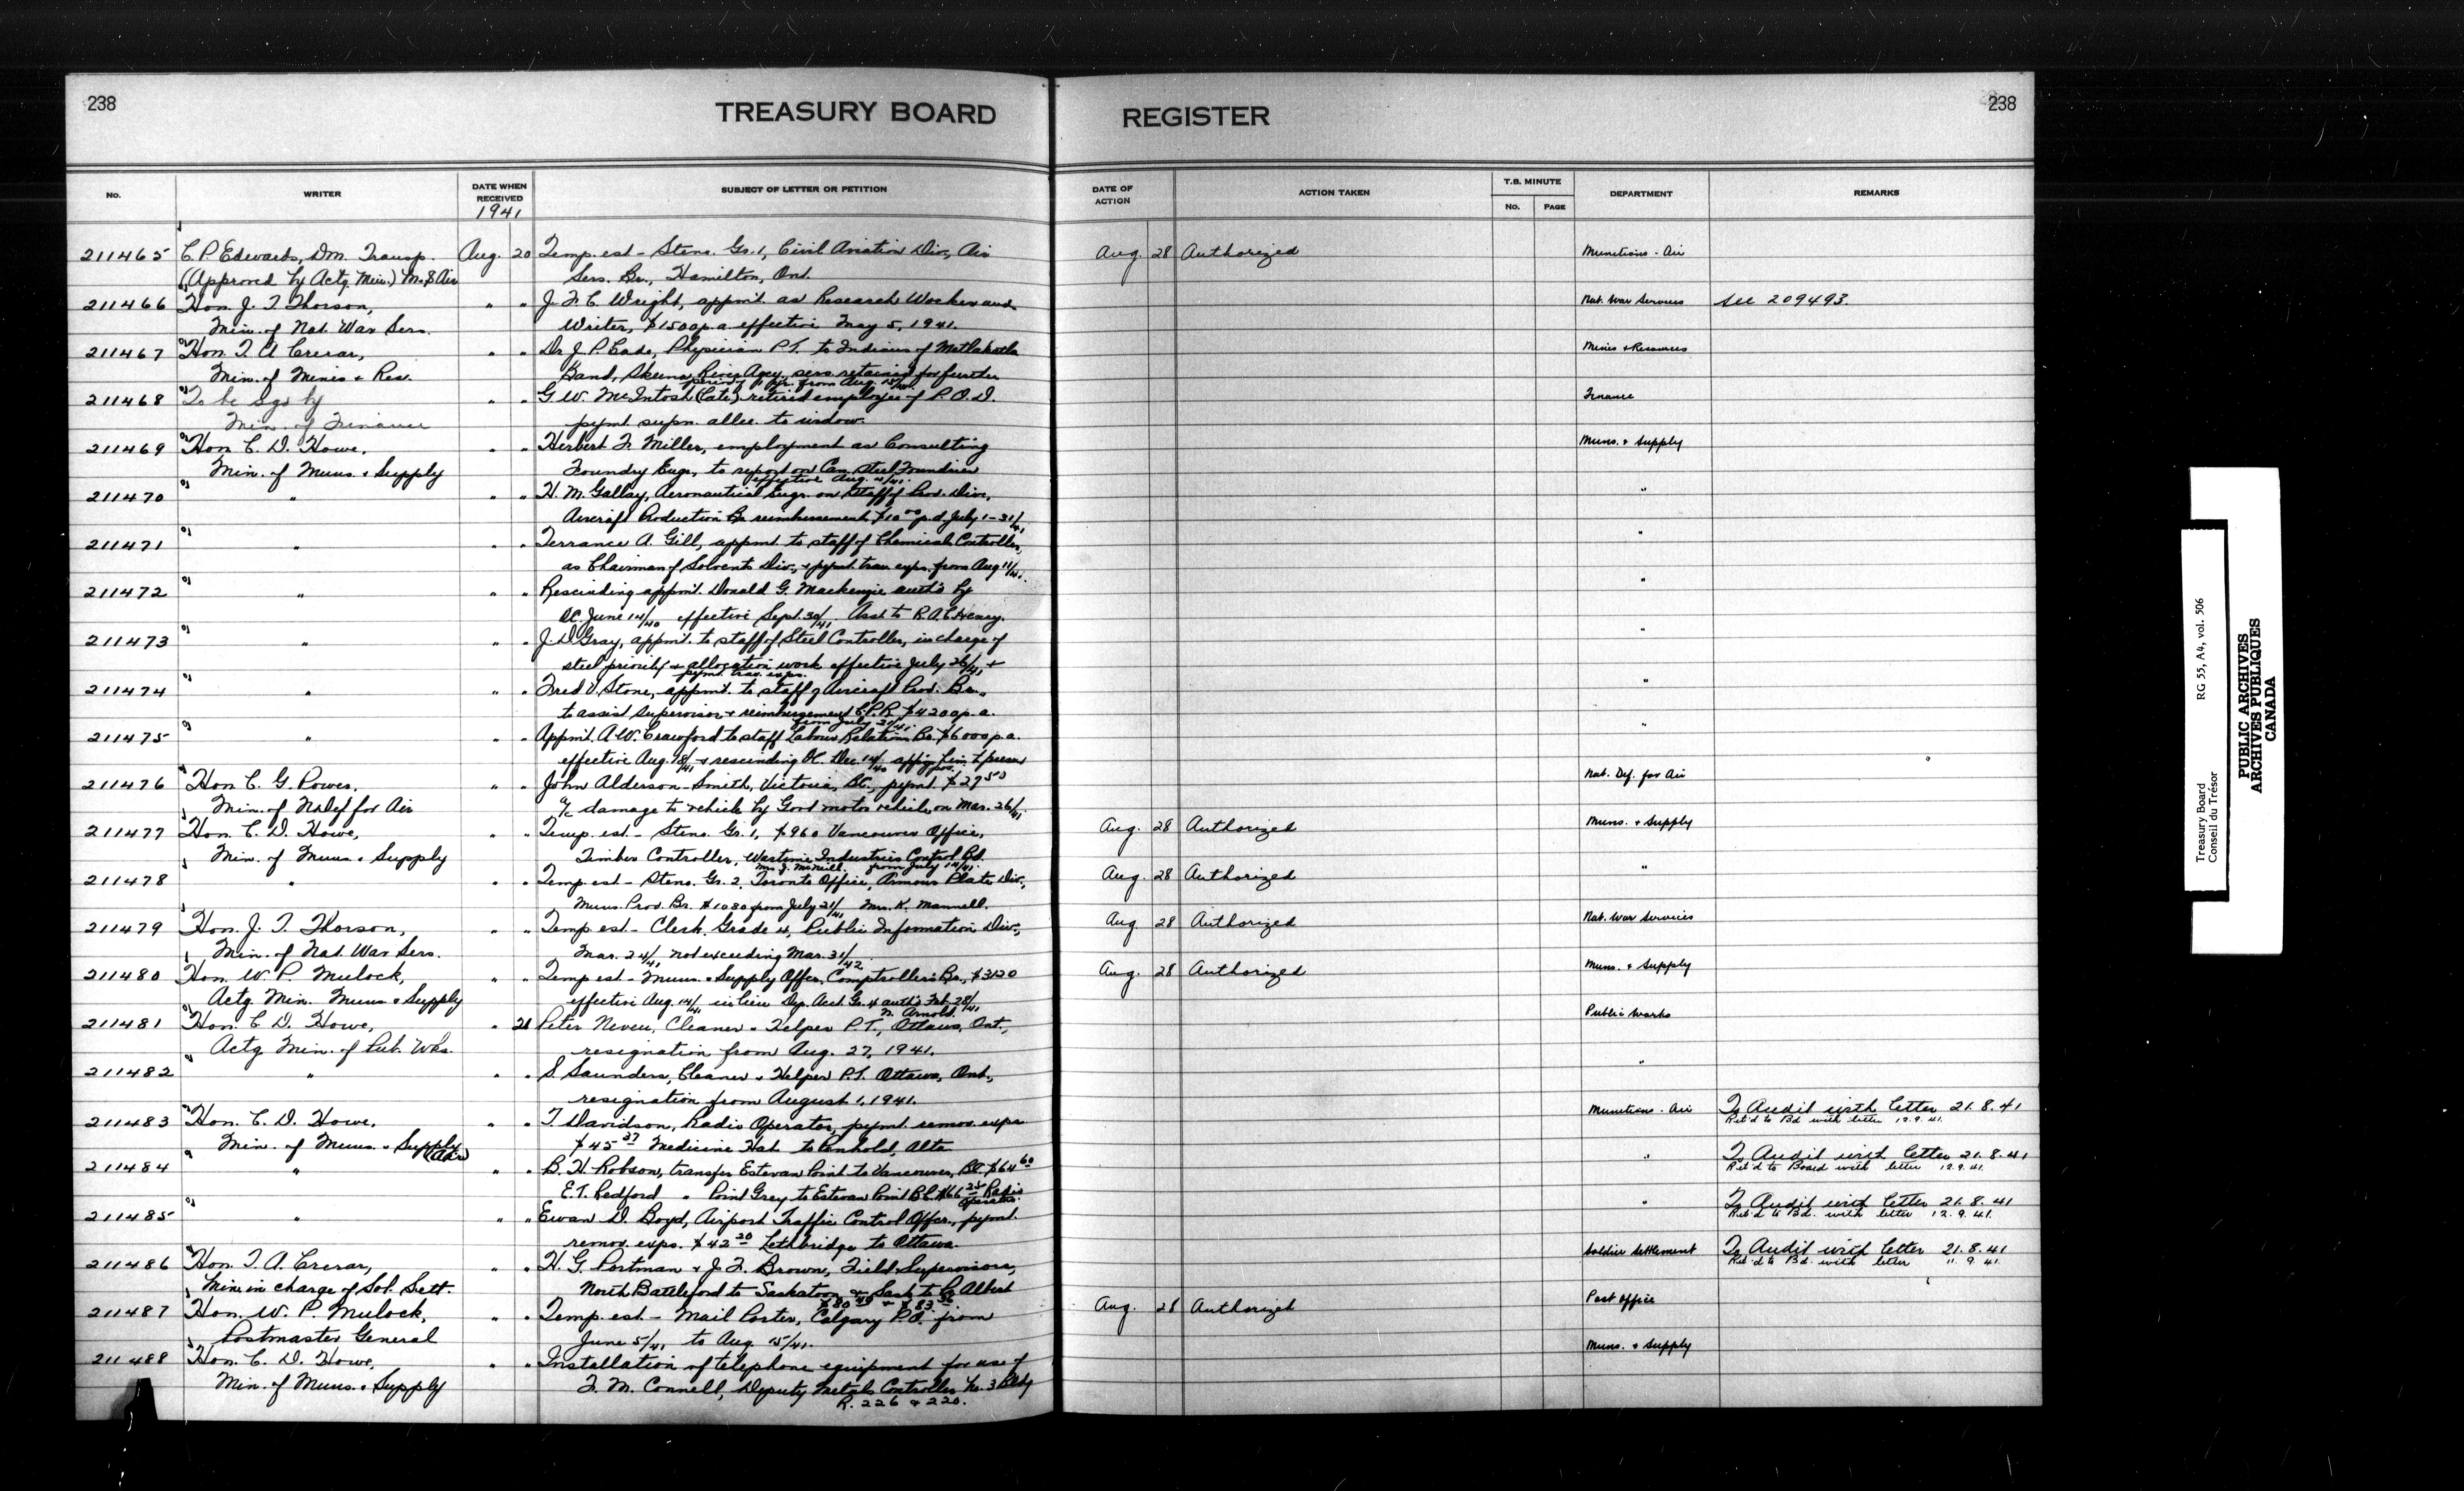 238
TREASURY BOARD
REGISTER
238
No.
WRITER
DATE WHEN RECEIVED
1941
SUBJECT OF LETTER OR PETITION
DATE OF ACTION
ACTION TAKEN
T.B. MINUTE
No.
PAGE
DEPARTMENT
REMARKS
211465 C. P. Edwards, Dm. Transp. Aug. 20 Temp. est - Steno. Gr. 1, Civil Aviation Div, Air Aug. 28 Authorized Munitions - Air
(Approved by Actg. Min.) M. & S Air Serv. Br., Hamilton, Ont.
211466 Hon. J. T. Thorson, " " J. F. C. Wright, appmt. as Research Worker and Nat. War Services see 209493.
Min. of Nat. War Sers. Writer, $1500 p.a. effective May 5, 1941.
211467 Hon. T. A. Crerar, " " Dr. J. P. Cade, Physician P.T. to Indians of Metlakatla Mines & Resources
Min. of Mines & Res. Band, Skeena River Agcy. sers. retained for further
period of 1 yr. from Aug. 15/41.
211468 To be sgd by " " G. W. McIntosh (late) retired employee of P.O.D. Finance
Min. of Finance pymt supn. allce. to widow.
211469 Hon. C. D. Howe, " " Herbert F. Miller, employment as Consulting Muns. & Supply
Min. of Muns. & Supply Foundry Engr., to report on Can. Steel Foundries
effective Aug.
211470 " " " H. M. Gallay, Aeronautical Engr. on staff of Prod. Divn., "
Aircraft Production Br. reimbursement $10 00 p.d. July 1-31/41
211471 " " " Terrance A. Gill, appmt. to staff of Chemicals Controller, "
as Chairman of Solvents Div., & pymt. trav. exps. from Aug 11/41.
211472 " " " Rescinding appmt. Donald G. Mackenzie auth'd by "
OC. June 14/40 effective Sept. 30/41 Asst to R.A.C. Henry.
211473 " " " J. D. Gray, appmt. to staff of Steel Controller, in charge of "
steel priority & allocation work effective July 26/41, &
pymt. trav. exps.
211474 " " " Fred V. Stone, appmt. to staff of Aircraft Prod. Br., "
to assist supervisor & reimbursement C.P.R. $4200 p.a.
from July
211475 " " " Appmt. A. W. Crawford to staff Labour Relations Br. $6000 p.a. "
effective Aug. 18/41 & rescinding OC. Dec. 14/40
211476 Hon. C. G. Power, " " John Alderson-Smith, Victoria, BC., pymt. $27 50 Nat. Def. for Air
Min. of Nat Def for Air a/c damage to vehicle by Govt motor vehicle on Mar. 26/41.
211477 Hon. C. D. Howe, " " Temp. est - Steno. Gr. 1, $960 Vancouver Office, Aug. 28 Authorized Muns. & Supply
Min. of Muns. & Supply Timber Controller, Wartime Industries Control Bd.
Mrs. J. McNeill, from July 14/41.
211478 " " " Temp est - Steno. Gr. 2, Toronto Office, Armour Plate Div., Aug. 28 Authorized "
Muns. Prod. Br. $1080 from July 21/41 Mrs. K. Mannell.
211479 Hon. J. T. Thorson, " " Temp est - Clerk, Grade 4, Public Information Div., Aug 28 Authorized Nat. War Services
Min. of Nat. War Sers. Mar. 24/41 not exceeding Mar. 31/42
211480 Hon. W. P. Mulock, " " Temp est - Muns. & Supply Offcr. Comptroller's Br., $3120 Aug. 28 Authorized Muns. & Supply
Actg. Min. Muns & Supply effective Aug. 14/41 in lieu Dep. Acct. Gr. 4 auth'd Feb. 28/41
N. Arnold.
211481 Hon. C. D. Howe, " 21 Peter Neveu, Cleaner & Helper P.T., Ottawa, Ont., Public Works
Actg. Min. of Pub. Wks. resignation from Aug. 27, 1941.
211482 " " " S. Saunders, Cleaner & Helper P.T. Ottawa, Ont., "
resignation from August 1, 1941.
211483 Hon. C. D. Howe, " " T. Davidson, Radio Operator, pymt. remov. exps. Munitions - Air To Audit with letter 21.8.41
Ret'd to Bd with letter 12.9.41.
Min. of Muns. & Supply (Air) $45 37 Medicine Hat to Penhold, Alta
211484 " " " B. H. Robson, transfer Estevan Point to Vancouver, BC. $64 60 " To Audit with letter 21.8.41
Ret'd to Board with letter 12.9.41.
E. T. Redford " Point Grey to Estevan Point B.C. $66 25 Radio
Operators.
211485 " " " Ewan D. Boyd, Airport Traffic Control Offcr., pymt. " To Audit with letter 21.8.41
Ret'd to Bd. with letter 12.9.41.
remov. exps. $42 20 Lethbridge to Ottawa.
211486 Hon. T. A. Crerar, " " H. G. Portman & J. F. Brown, Field Supervisors, Soldier Settlement To Audit with letter 21.8.41
Ret'd to Bd. with letter 11.9.41.
Min. in charge of Sol. Sett. North Battleford to Saskatoon & Sask to P. Albert
211487 Hon. W. P. Mulock, " " Temp. est - Mail Porter, Calgary P.O. from Aug. 28 Authorized Post Office
Postmaster General June 5/41 to Aug 15/41.
211488 Hon. C. D. Howe, " " Installation of telephone equipment for use of Muns. & Supply
Min. of Muns. & Supply F. M. Connell, Deputy Metals Controller No. 3 Bldg
R. 226 & 220.
Treasury Board
Conseil du Trésor
RG 55, A4, vol. 506
PUBLIC ARCHIVES
ARCHIVES PUBLIQUES
CANADA